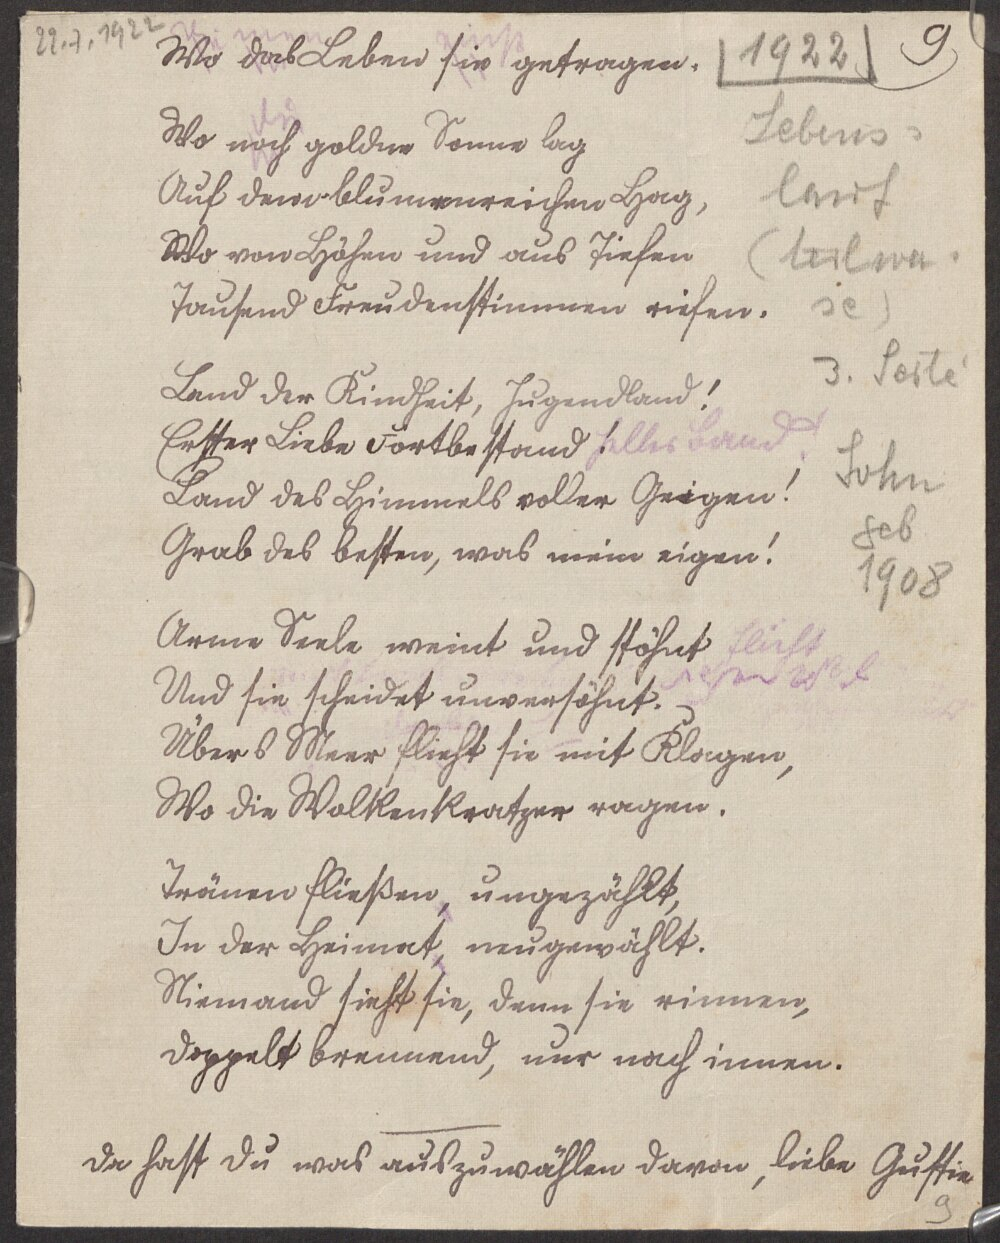 22.7.1922
Wo das Leben sie getragen.
1922
9
Wo noch goldne Sonne lag
Auf dem blumenreichen Hag,
Wo von Höhen und aus Tiefen
Tausend Freudenstimmen riefen.
Lebens-
lauf
(teilwei-
se)
3. Seite
Land der Kindheit, Jugendland!
Erster Liebe Fortbestand! helles Band!
Land des Himmels voller Geigen!
Grab des besten, was mein eigen!
Sohn
geb
1908
Arme Seele weint und stöhnt
flieht
Und sie scheidet unversöhnt.
Übers Meer flieht sie mit Klagen,
Wo die Wolkenkratzer ragen.
Tränen fließen, ungezählt,
In der Heimat, neugewählt.
Niemand sieht sie, denn sie rinnen,
Doppelt brennend, nur nach innen.
Da hast Du was auszuwählen davon, liebe Gustie
9